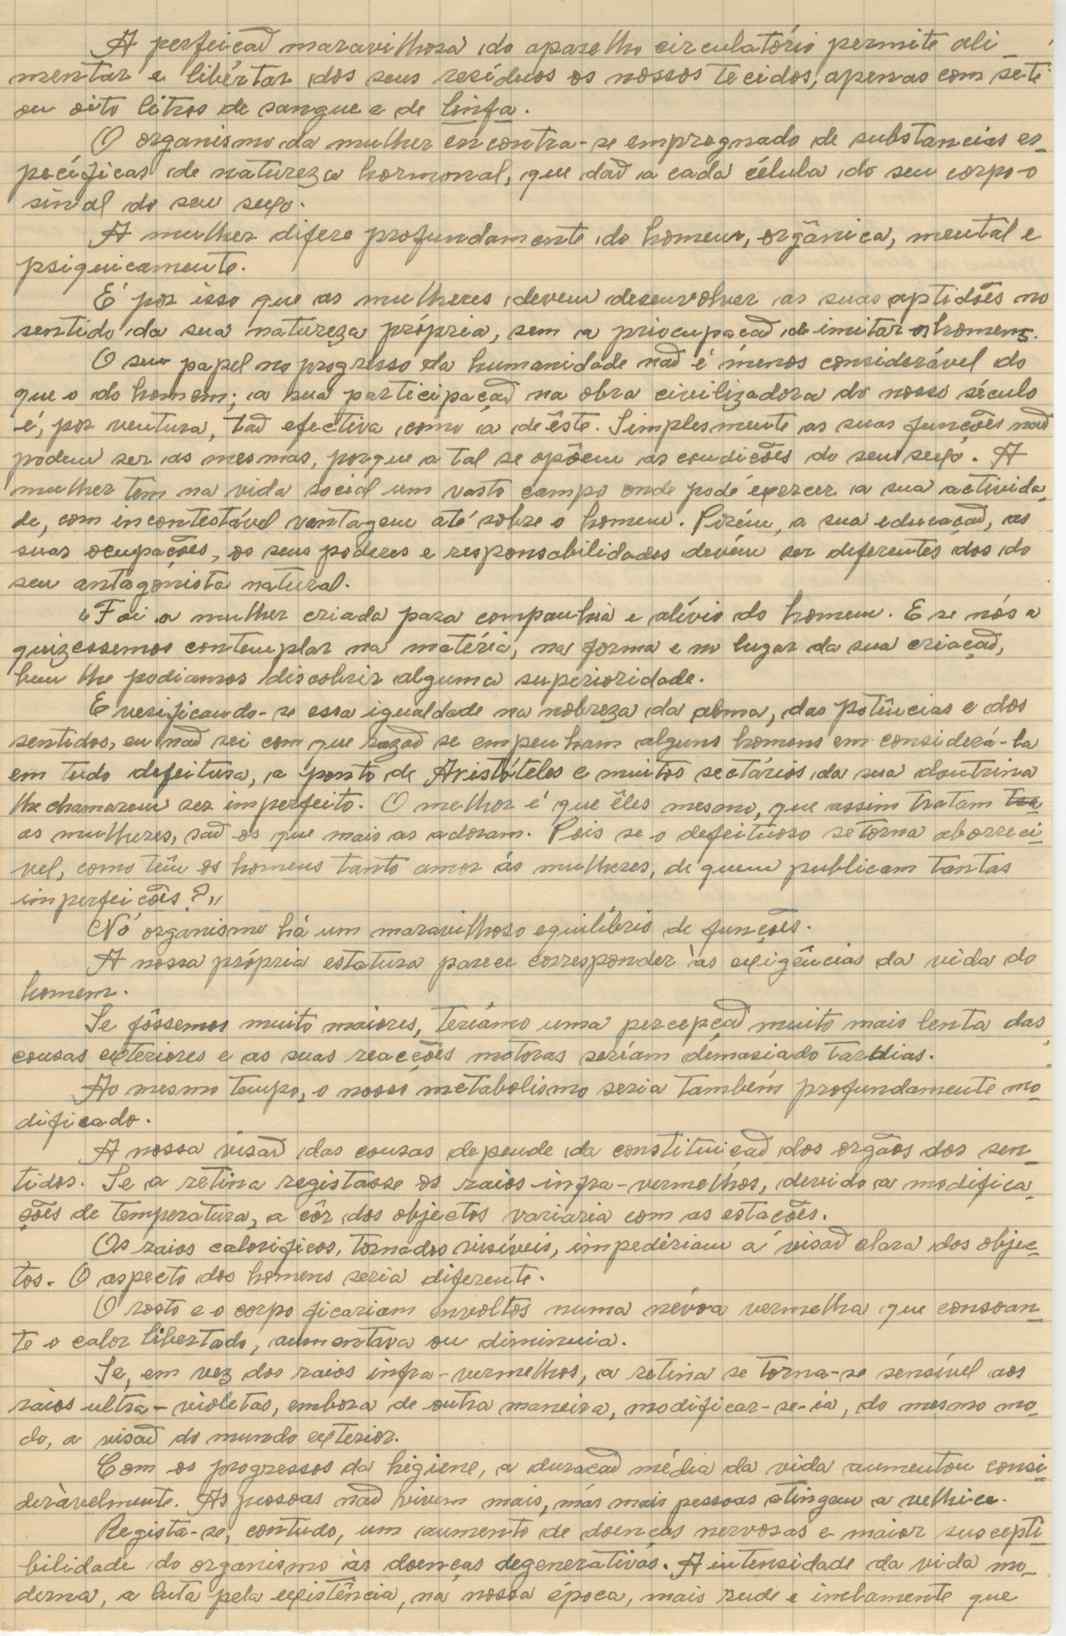 A perfeição maravilhosa do aparelho circulatório permite ali-
mentar e libértar dos seus resíduos os nossos tecidos, apenas com sete
ou oito litros de sangue e de linfa.
O organismo da mulher encontra-se empregnado de substancias es-
pecíficas de natureza hormonal, que dão a cada célula do seu corpo o
sinal do seu sexo.
A mulher difere profundamente do homem, orgânica, mental e
psiquicamente.
É por isso que as mulheres devem desenvolver as suas aptidões no
sentido da sua natureza própria, sem a priocupação de imitar os homens.
O seu papel no progresso da humanidade não é menos considerável do
que o do homem; a sua participação na obra civilizadora do nosso século
é, por ventura, tão efectiva como a dêste. Simplesmente as suas funcões não
podem ser as mesmas, porque a tal se opõem as condicões do seu sexo. A
mulher tem na vida social um vasto campo onde pode exercer a sua activida-
de, com incontestável vantagem até sobre o homem. Porém, a sua educação, as
suas ocupações, os seus poderes e responsabilidades devem ser diferentes dos do
seu antagónista natural.
"Foi a mulher criada para companhia e alívio do homem. E se nós a
quizessemos contemplar na matéria, na forma e no lugar da sua criação,
bem lhe podiamos discobrir alguma superioridade.
E verificando-se essa igualdade na nobreza da alma, das potências e dos
sentidos, eu não sei com que razão se empenham alguns homens em considerá-la
em tudo defeitura, a ponto de Aristóteles e muitos sectários da sua doutrina
lhe chamarem ser imperfeito. O melhor é que êles mesmo, que assim tratam
as mulheres, são os que mais as adoram. Pois se o defeituoso se torna aborreci-
vel, como têm os homens tanto amor ás mulheres, de quem publicam tantas
imperfeicões?"
Nó organismo há um maravilhoso equilíbrio de funções.
A nossa própria estatura parece corresponder às exigências da vida do
homem.
Se fôssemos muito maiores, teríamo uma percepção muito mais lenta das
cousas exteriores e as suas reacções motoras seríam demasiado tardias.
Ao mesmo tempo, o nosso metabolismo seria também profundamente mo-
dificado.
A nossa visão das cousas depende da constituição dos orgãos dos sen-
tidos. Se a retina registasse os raios infra-vermelhos, devido a modifica-
ções de temperatura, a côr dos objectos variaria com as estações.
Os raios calorificos, tornados visíveis, impediriam a visão clara dos objec-
tos. O aspecto dos homens seria diferente.
O rosto e o corpo ficariam envoltos numa névoa vermelha que consoan-
te o calor libertado, aumentava ou diminuia.
Se, em vez dos raios infra-vermelhos, a retina se torna-se sensível aos
raios ultra-violetas, embora de outra maneira, modificar-se-ia, do mesmo mo-
do, a visão do mundo exterior.
Com os progressos da higiene, a duração média da vida aumentou consi-
deràvelmente. As pessoas não vivem mais, mas mais pessoas atingem a velhice.
Regista-se, contudo, um aumento de doencas nervosas e maior suscepti-
bilidade do organismo às doencas degenerativas. A intensidade da vida mo-
derna, a luta pela existência, na nossa época, mais rude e que